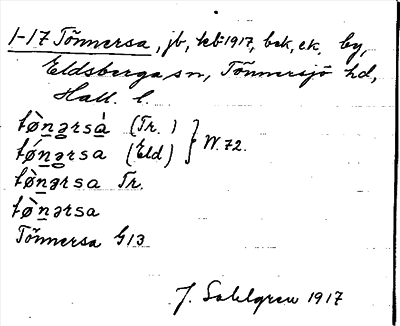 1-17 Tönnersa, jb, keb 1917, bek, ek, by,
Eldsberga sn, Tönnersjö hd,
Hall. l.
tø̀nərsà (Tr.) } W. 72.
tǿnərsa (Eld)
tø̀nərsa Tr.
tø̀nərsa
Tönnersa G13
J. Sahlgren 1917